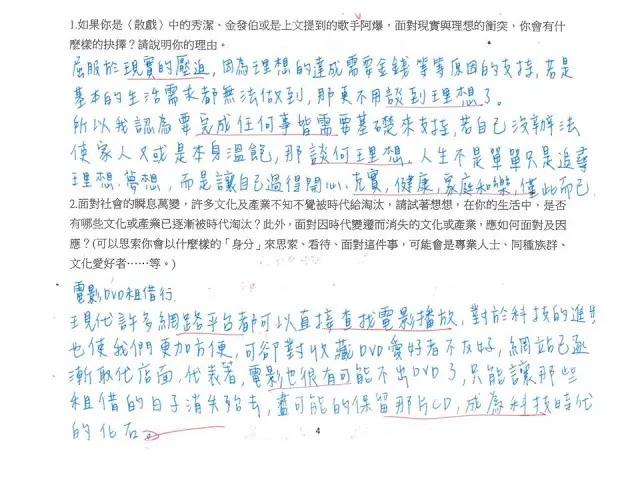 1.如果你是〈散戲〉中的秀潔、金發伯或是上文提到的歌手阿爆，面對現實與理想的衝突，你會有什
麼樣的抉擇？請說明你的理由。
屈服於現實的壓迫，因為理想的達成需要金錢等等原因的支持，若是
基本的生活需求都無法做到，那更不用談到理想了。
所以我認為要完成任何事皆需要基礎來支持，若自己沒辦法
使家人又或是本身溫飽，那談何理想。人生不是單單只是追尋
理想、夢想，而是讓自己過得開心、充實，健康，家庭和樂，僅此而已
2.面對社會的瞬息萬變，許多文化及產業不知不覺被時代給淘汰，請試著想想，在你的生活中，是否
有哪些文化或產業已逐漸被時代淘汰？此外，面對因時代變遷而消失的文化或產業，應如何面對及因
應？(可以思索你會以什麼樣的「身分」來思索、看待、面對這件事，可能會是專業人士、同種族群、
文化愛好者……等。)
電影DVD租借行
現代許多網路平台都可以直接查找電影播放，對於科技的進步
也使我們更加方便，可卻對收藏DVD愛好者不友好，網站已逐
漸取代店面，代表著，電影也很有可能不出DVD了，只能讓那些
租借的日子消失殆去，盡可能的保留那片CD，成為科技時代
的化石。
4